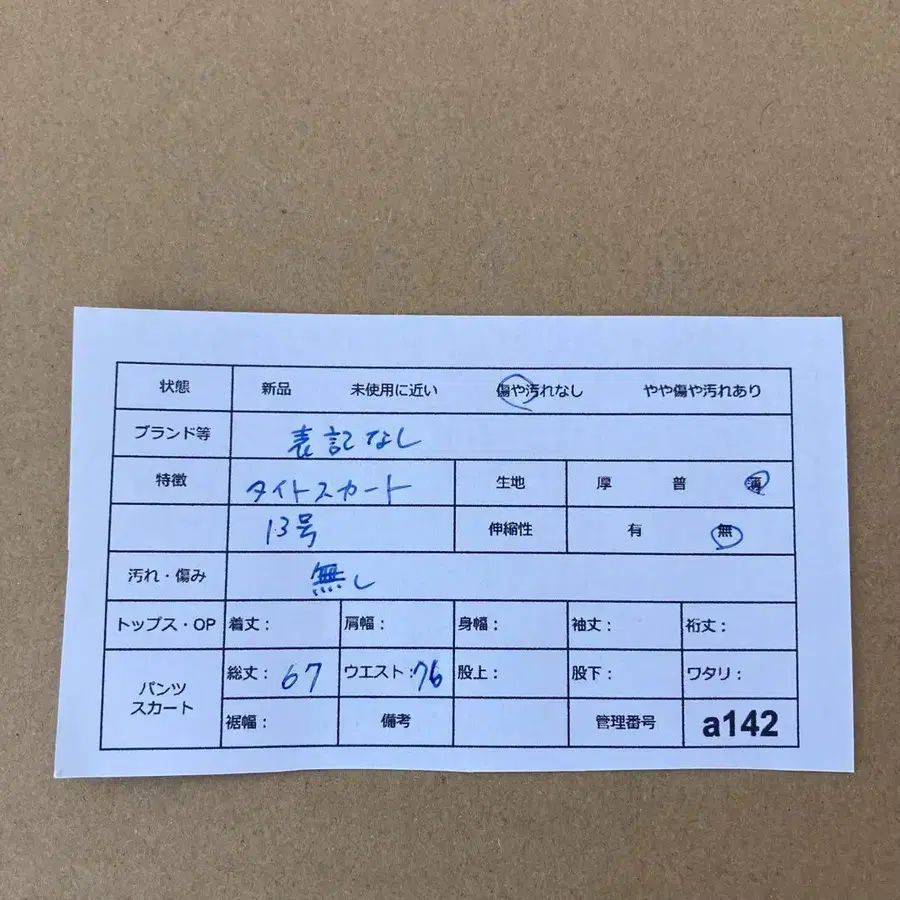 状態 新品 未使用に近い 傷や汚れなし やや傷や汚れあり
ブランド等 表記なし
特徴 タイトスカート 生地 厚 普 薄
13号 伸縮性 有 無
汚れ・傷み 無し
トップス・OP 着丈: 肩幅: 身幅: 袖丈: 裄丈:
パンツ スカート 総丈: 67 ウエスト: 76 股上: 股下: ワタリ:
裾幅: 備考 管理番号 a142